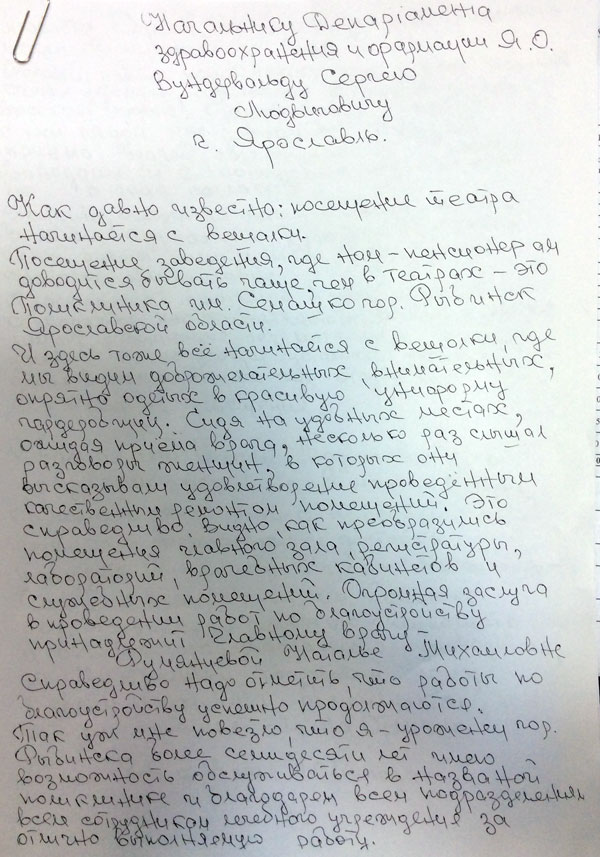 Начальнику Департамента
здравоохранения и фармации Я.О.
Вундервальду Сергею
Людвиговичу
г. Ярославль.
Как давно известно: посещение театра
начинается с вешалки.
Посещение заведения, где нам - пенсионерам
доводится бывать чаще, чем в театрах - это
Поликлиника им. Семашко гор. Рыбинск
Ярославской области.
И здесь тоже всё начинается с вешалки, где
мы видим доброжелательных внимательных,
опрятно одетых в красивую униформу
гардеробщиц. Сидя на удобных местах,
ожидая приёма врача, несколько раз слышал
разговоры женщин, в которых они
высказывали удовлетворение проведённым
качественным ремонтом помещений. Это
справедливо. Видно, как преобразились
помещения главного зала, регистратуры,
лабораторий, врачебных кабинетов и
служебных помещений. Огромная заслуга
в проведении работ по благоустройству
принадлежит Главному врачу
Румянцевой Наталье Михайловне
Справедливо надо отметить, что работы по
благоустройству успешно продолжаются.
Так уж мне повезло, что я - уроженец гор.
Рыбинска более семидесяти лет имею
возможность обслуживаться в названой
поликлинике и благодарен всем подразделениям
всем сотрудникам лечебного учреждения за
отлично выполняемую работу.